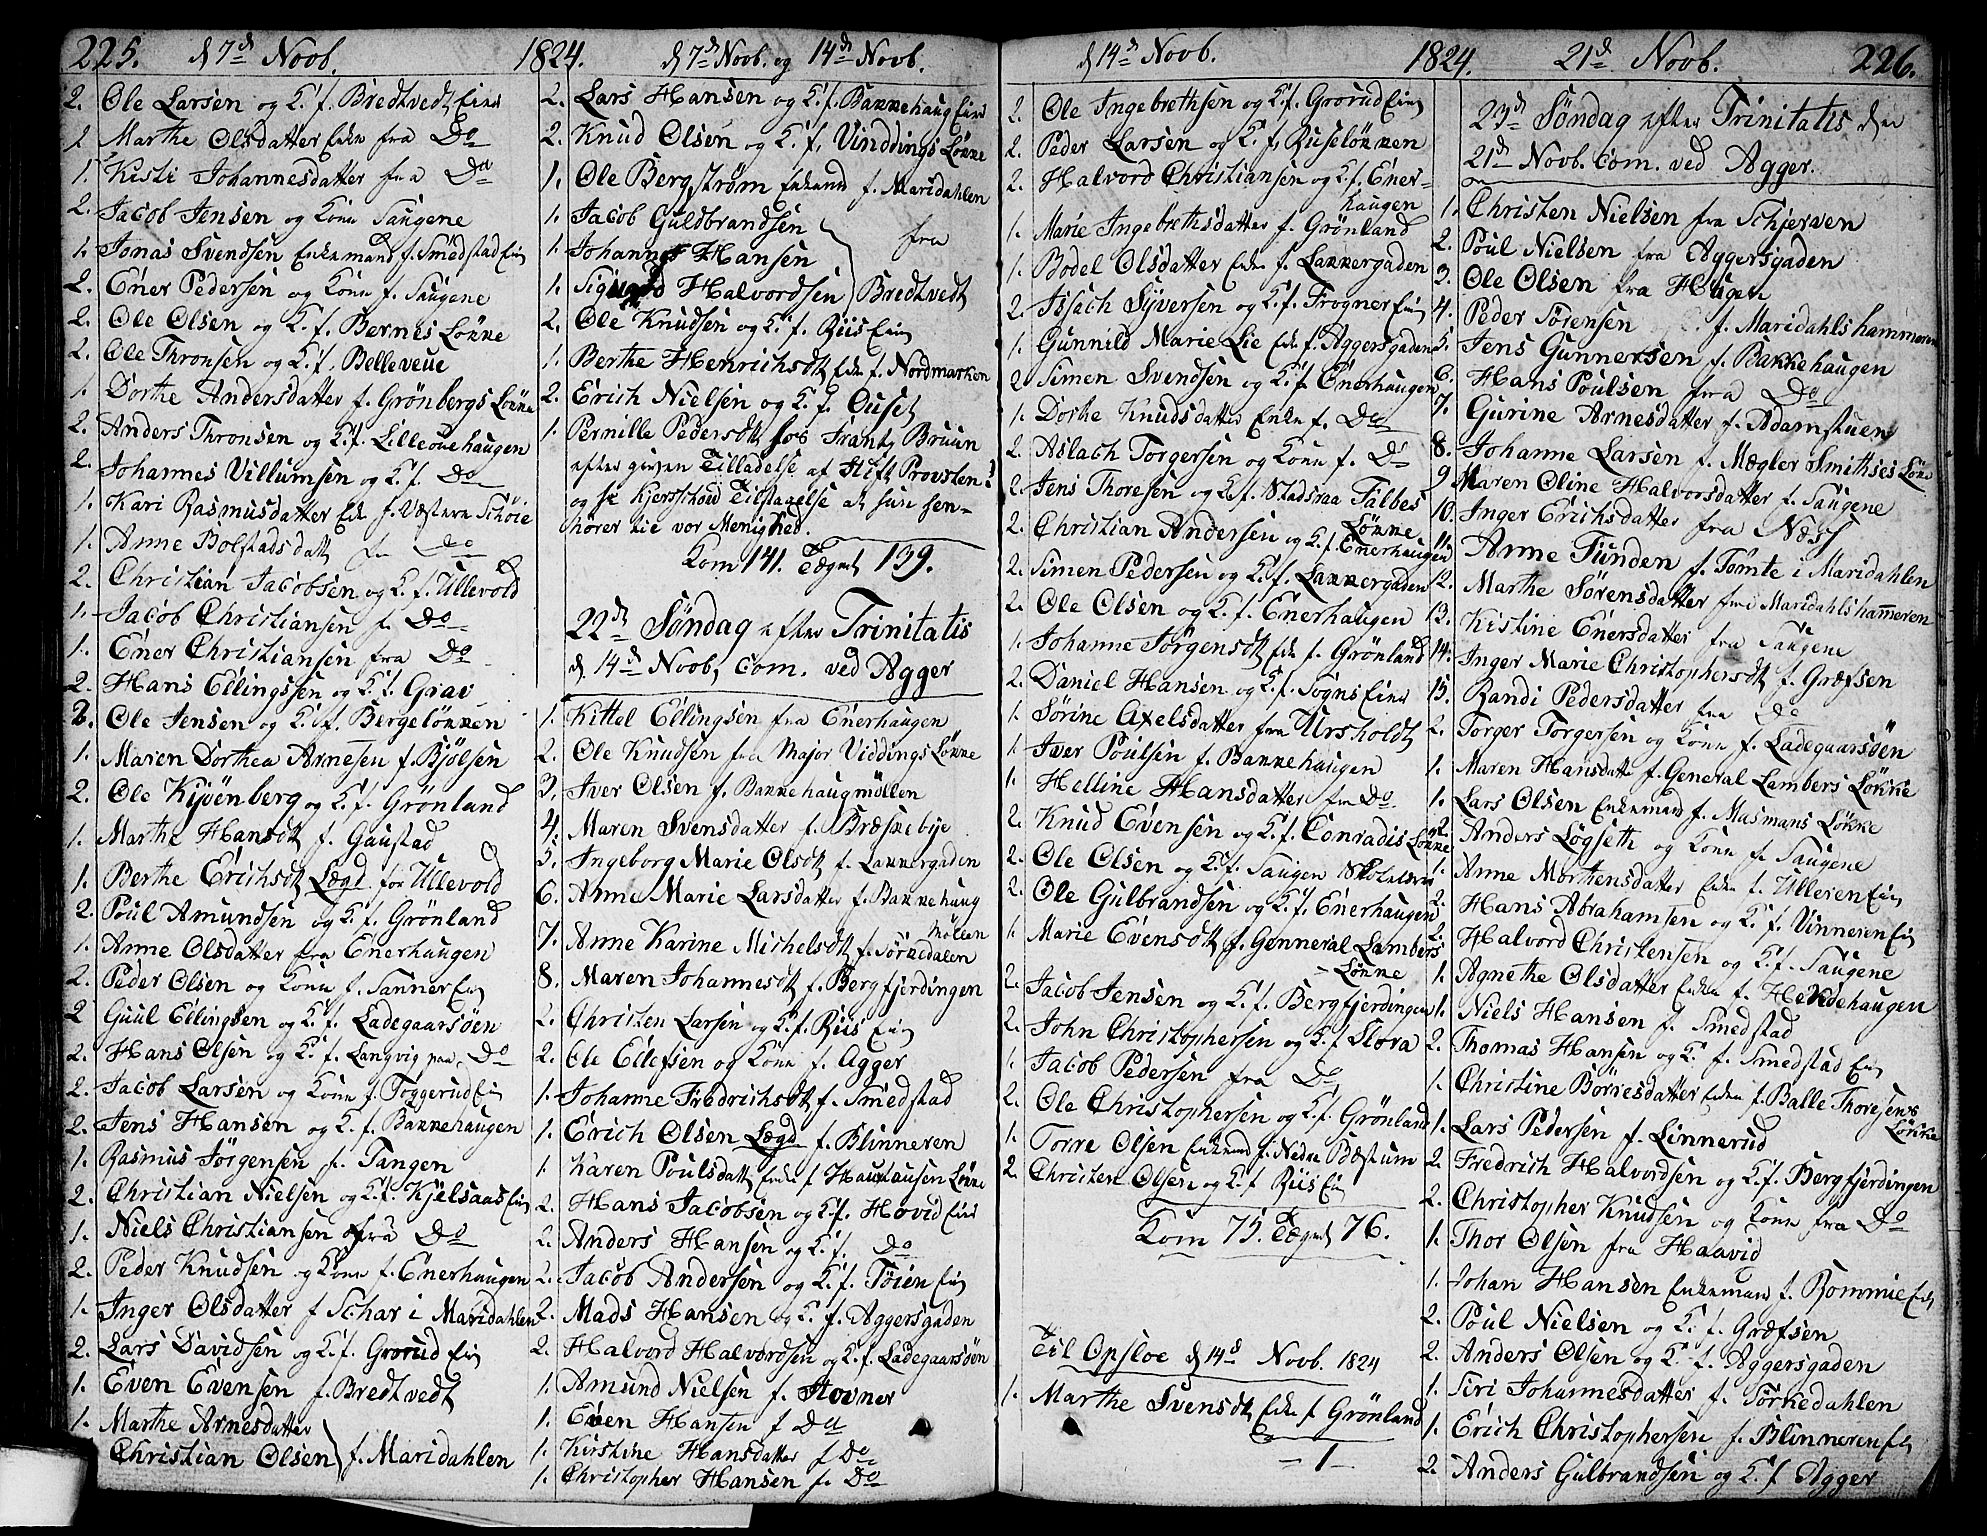 225. d 7de Novb. 1824.
2. Ole Larsen og K. f. Bredtvedt Eie
1 Marthe Olsdatter Enke fra Do
1. Kisti Johannesdatter fra Do
2. Jacob Jensen og Kone Saugene
1. Jonas Svendsen Enkemand f. Smedstad Eie
2. Ener Pedersen og Kone f. Saugene
2. Ole Olsen og K. f. Bernes Løkke
2. Ole Thronsen og K. f. Belleveue
1. Dorthe Andersdatter f. Grønbergs Løkke
2. Anders Thronsen og K. f. Lilleouehaugen
2. Johannes Villumsen og K. f. Do
1. Kari Rasmusdatter Enke f. Vestern Schøie
1. Anne Bolstadsdatt fra Do
2. Christian Jacobsen og K. f. Ullevold
1. Jacob Christiansen f. Do
1. Ener Christiansen fra Do
2. Hans Ellingsen og K. f. Grav
2. Ole Jensen og K. f. Bergeløkken
1. Maren Dorthea Arnesen f. Bjølsen
2. Ole Kjøenberg og K. f. Grønland
1. Marthe Hansdt f. Gaustad
1. Berthe Erichsdt Lægd for Ullevold
2. Poul Amundsen og K. f. Grønland
1. Anne Olsdatter fra Enerhaugen
2. Peder Olsen og Kone f. Sanner Eie
2 Guul Ellingsen og K. f. Ladegaarsøen
2. Hans Olsen og K. f. Langvig paa Do
2. Jacob Larsen og Kone f. Toggerud Eie
2. Jens Hansen og K. f. Bakkehaugen
1. Rasmus Jørgensen f. Tangen
2. Christian Nielsen og K. f. Kjelsaas Eie
1. Niels Christiansen fra Do
2. Peder Knudsen og Kone f. Enerhaugen
1. Inger Olsdatter f Schar i Maridahlen
2. Lars Davidsen og K. f. Grorud Eie
1. Even Evensen f. Bredtvedt
1. Marthe Arnesdatter
Christian Olsen f. Maridahlen
d 7de Novb. og 14de Novb.
2. Lars Hansen og K. f. Bakkehaug Eie
2. Knud Olsen og K. f. Vinddings Løkke
1. Ole Bergstrøm Enkemd f. Maridahlen
1. Jacob Guldbrandsen
1. Johannes Hansen fra
1. Sigvard Halvordsen Bredtvedt
2. Ole Knudsen og K. f. Riis Eie
1. Berthe Henrichsdt Enke f. Nordmarken
2. Erich Nielsen og K. f. Ouset
1. Pernille Pedersdt hos Frantz Bruun
efter given Tilladelse af Stift Provsten
og Tilstaaelse at hun hen-
hører til vor Menighed.
Kom 141. Tegnet 139.
22de Søndag efter Trinitatis
d 14de Novb. com. ved Agger
1. Kittel Ellingsen fra Enerhaugen
2. Ole Knudsen fra Major Viddings Løkke
3. Iver Olsen f. Bakkehaugmøllen
4. Maren Svensdatter f. Bræskebye
5. Ingeborg Marie Olsdt f. Lakkergaden
6. Anne Marie Larsdatter f. Bakkehaug
Møllen
7. Anne Karine Michelsdt f. Sørkedalen
8. Maren Johannesdt f. Bergfjerdingen
2. Christen Larsen og K. f. Riis Eie
2. Ole Ellefsen og Kone f. Agger
1. Johanne Fredrichsdt f. Smedstad
1. Erich Olsen Lægd f. Blinneren
1. Karen Poulsdatt Enke f Hauhausen Løkke
2. Hans Jacobsen og K. f. Hovid Eie
2. Anders Hansen og K. f. Do
2. Jacob Andersen og K. f. Tøien Eie
2. Mads Hansen og K. f. Aggersgaden
2. Halvord Halvordsen og K. f. Ladegaarsøen
1. Amund Nielsen f. Hovner
1. Even Hansen f Do
1. Kirstine Hansdatter f Do
1. Christopher Hansen f. Do
d 14de Novb. 1824.
2. Ole Ingebrethsen og K. f. Grorud Eie
2. Peder Larsen og K. f. Ruseløkken
2. Halvord Christiansen og K. f. Ener-
haugen
1. Marie Ingebrethsdatter f. Grønland
1. Bodel Olsdatter Enke f. Lakkergaden
2. Issach Syversen og K. f. Frogner Eie
1. Gunnild Marie Lie Enke f. Aggersgaden
2. Simen Svendsen og K. f Enerhaugen
1. Dorthe Knudsdatter Enke f. Do
2. Aslach Torgersen og Kone f. Do
2. Jens Thoresen og K. f. Stadsraa Falbes
Løkke
2. Christian Andersen og K. f. Enerhaugen
2. Simen Pedersen og K. f. Lakkergaden
2. Ole Olsen og K. f. Enerhaugen
1. Johanne Jørgensdt Enke f. Grønland
2. Daniel Hansen og K. f. Sogns Eie
1. Sørine Axelsdatter fra Ursholdt
1. Iver Poulsen f. Bakkehaugen
1. Helline Hansdatter fra Do
2. Knud Evensen og K. f. Conradis Løkke
2. Ole Olsen og K. f. Saugen
2. Ole Gulbrandsen og K. f. Enerhaugen
1. Marie Evensdt f. Genneral Lambers
- Løkke
2. Jacob Jensen og K. f. Bergfjerdingen
2. John Christophersen og K. f Slora
1. Jacob Pedersen fra Do
2. Ole Christophersen og K. f. Grønland
1. Torre Olsen Enkemd f. Nedre Bæstum
2. Christen Olsen og K. f Riis Eie
Kom 75. Tegnet 76.
Til Opsloe d 14de Novb. 1824
1. Marthe Svensdt Enke f Grønland
- 1 -
21de Novb. 226.
23de Søndag efter Trinitatis den
21de Novb. com. ved Agger.
1. Christen Nielsen fra Schjerven
2. Poul Nielsen fra Aggersgaden
3. Ole Olsen fra Haugen
4. Peder Sørensen f. Maridahlshammeren
5. Jens Gunnersen f. Bakkehaugen
6. Hans Poulsen fra Do
7. Gurine Arnesdatter f. Adamstuen
8. Johanne Larsen f. Mægler Smithses Løkke
9 Maren Oline Halvorsdatter f. Saugene
10. Inger Erichsdatter fra Næss
11. Anne Funden f. Tømte i Maridahlen
12. Marthe Sørensdatter fra Maridahlshammeren
13. Kistine Enersdatter fra Saugene
14. Inger Marie Christophersdt f. Græfsen
15. Randi Pedersdatter fra Do
2. Torger Torgersen og Kone f. Ladegaarsøen
1. Maren Hansdatte f. General Lambers Løkke
1. Lars Olsen Enkemand f. Musmans Løkke
2. Anders Løgseth og Kone f. Saugene
1. Anne Morthensdatter Enke f. Ulleren Eie
2. Hans Abrahamsen og K. f. Vinneren Eie
2. Halvord Christensen og K. f. Saugene
1. Agnethe Olsdatter Enke f. Heksehaugen
1. Niels Hansen f. Smedstad
2. Thomas Hansen og K. f. Smedstad Eie
1. Christine Børresdatter Enke f. Balle Thoresens
Løkke
1. Lars Pedersen f. Linnerud
2. Fredrich Halvordsen og K. f. Bergfjerdingen
2. Christopher Knudsen og Kone fra Do
1. Thor Olsen fra Haavid
1. Johan Hansen Enkemand f. Bommie Eie
2. Poul Nielsen og K. f. Græfsen
2. Anders Olsen og K. f. Aggersgaden
1. Siri Johannesdatter f. Sørkedahlen
1. Erich Christophersen f. Blinneren Eie
2. Anders Gulbrandsen og K. f Agger